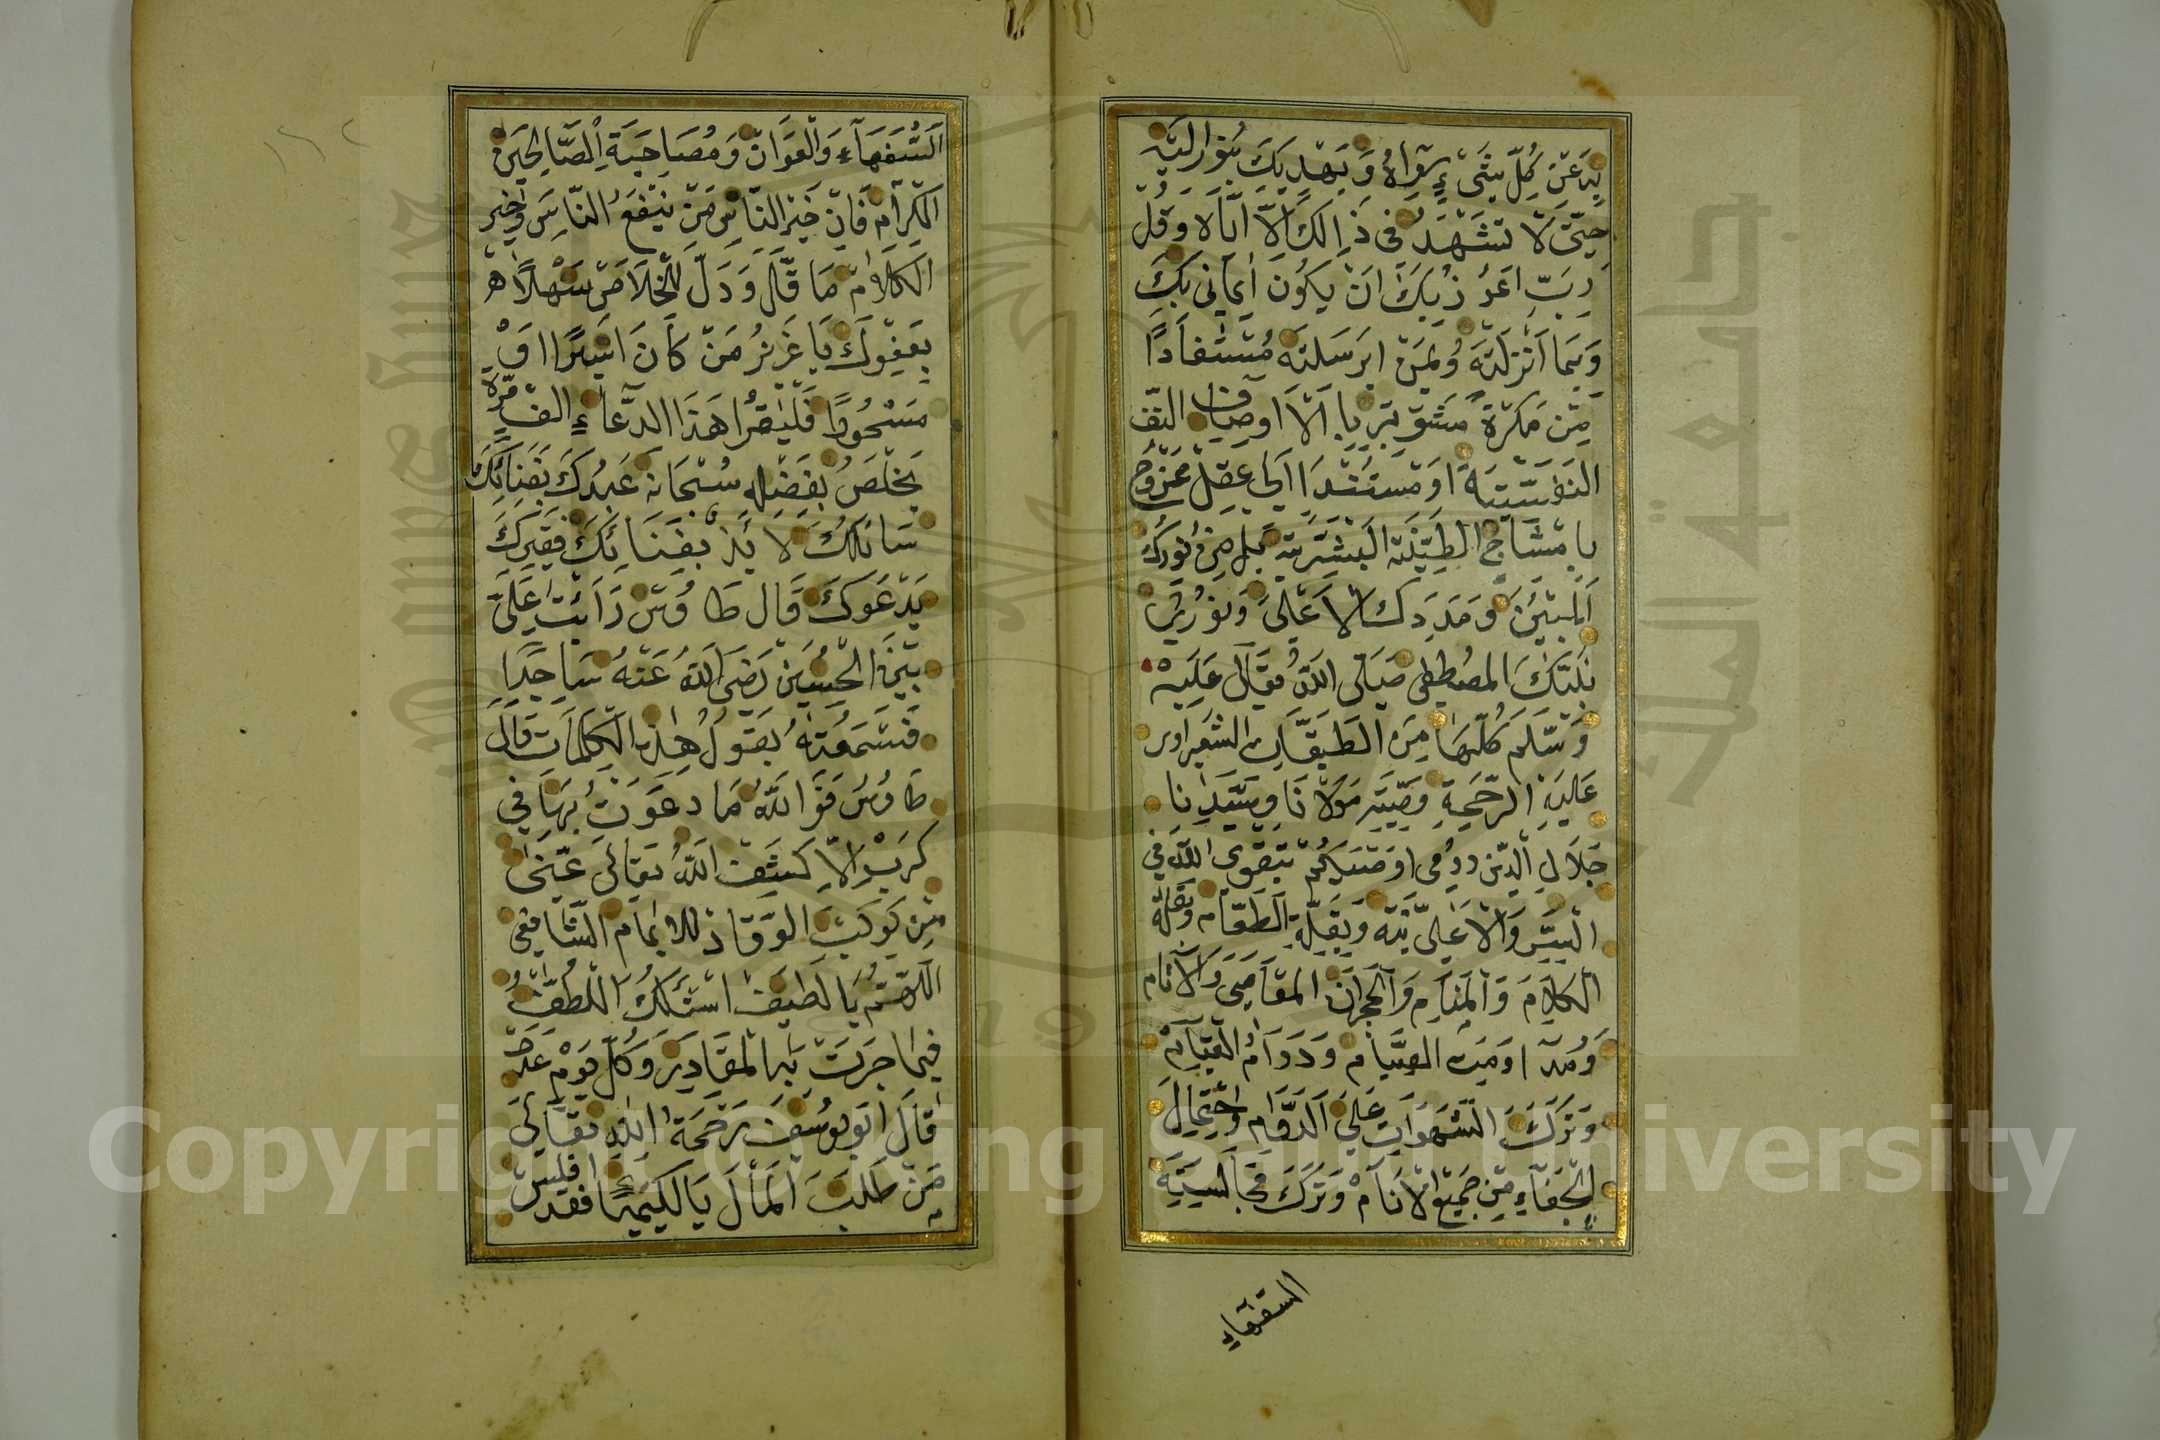 به عن كل شيء سواه ويهديك بنوره اليه
حتى لا تشهد في ذلك الا اياه وقل
رب اعوذ بك ان يكون ايماني بك
وبما انزلته وبمن ارسلته مستفادا
من فكرة مشوبة بالاوصاف النف
النفسية او مستندا الى عقل ممزوج
بامشاج الطينة البشرية بل من نورك
المبين ومددك الاعلى ونور
نبيك المصطفى صلى الله تعالى عليه
وسلم كلها من الطبقات الشعراوى
عليه الرحمة وصية مولانا وسيدنا
جلال الدين رومى اوصيكم بتقوى الله في
السر والاعلانية وبقلة الطعام وقلة
الكلام والمنام والهجران المعاصى والآثام
ومداومة الصيام ودوام القيام
وترك الشهوات على الدوام واحتمال
الجفاء من جميع الانام وترك مجالسة
السفهاء
السفهاء والعوان ومصاحبة الصالحين
الكرام فان خير الناس من ينفع الناس وخير
الكلام ما قل ودل للخلاص سهلا
بعفوك يا عزيز من كان اسيرا او
مسحورا فليقرا هذا الدعاء الف مرة
يخلص بفضله سبحانه عبدك بفنائك
سائلك لائذ بفنائك فقيرك
يدعوك قال طاوس رايت على
بن الحسين رضى الله عنه ساجدا
فسمعته يقول هذه الكلمات قال
طاوس فوالله ما دعوت بها في
كرب الا كشف الله تعالى عنى
من كوكب الوقاد للامام الشافعى
اللهم يا لطيف اسئلك اللطف
فيما جرت به المقادير وكل يوم عدد
قال ابو يوسف رحمة الله تعالى
من طلب المال بالكيميا فقد افلس
Copyright © King Saud University
جامعة الملك سعود
King Saud University
1957